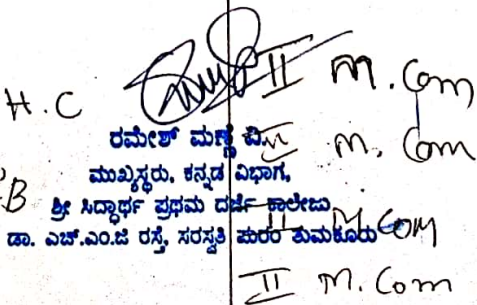 H.C II M.Com
ರಮೇಶ್ ಮಣ್ಣೆ ವಿ. II M.Com
ಮುಖ್ಯಸ್ಥರು, ಕನ್ನಡ ವಿಭಾಗ,
B ಶ್ರೀ ಸಿದ್ಧಾರ್ಥ ಪ್ರಥಮ ದರ್ಜೆ ಕಾಲೇಜು, II M.Com
ಡಾ. ಎಚ್.ಎಂ.ಜಿ ರಸ್ತೆ, ಸರಸ್ವತಿ ಪುರಂ ತುಮಕೂರು
II M.Com